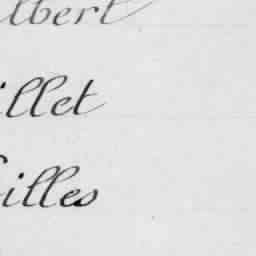 lbert
illet
illes